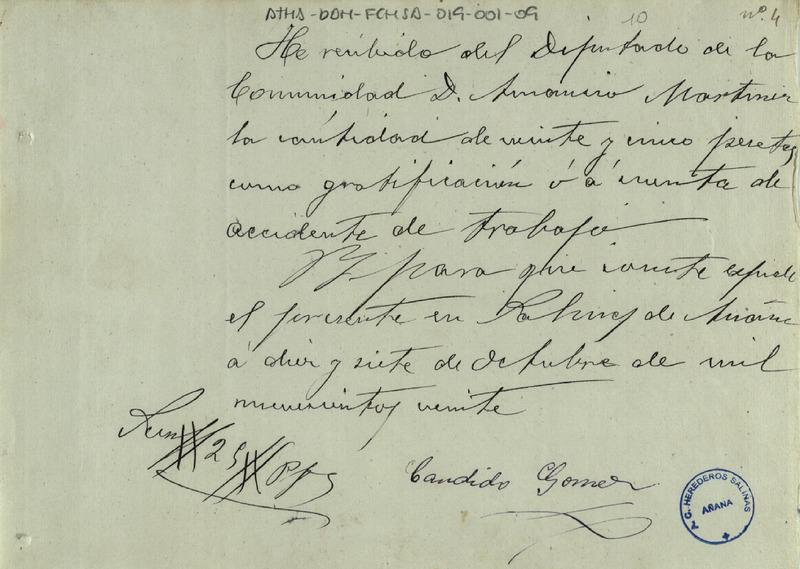 ATHA-DAH-FCMSA-019-001-09
10
nº. 4
He recibido del Diputado de la
Comunidad D. Amancio Martinez
la cántidad de veinte y cinco pesetas
como gratificación ó á cuenta de
accidente de trabajo
Y para que conste espido
el presente en Salinas de Añana
á diez y siete de Octubre de mil
nuevecientos veinte
Son # 25 # Pts
Candido Gomez
G. HEREDEROS SALINAS
AÑANA